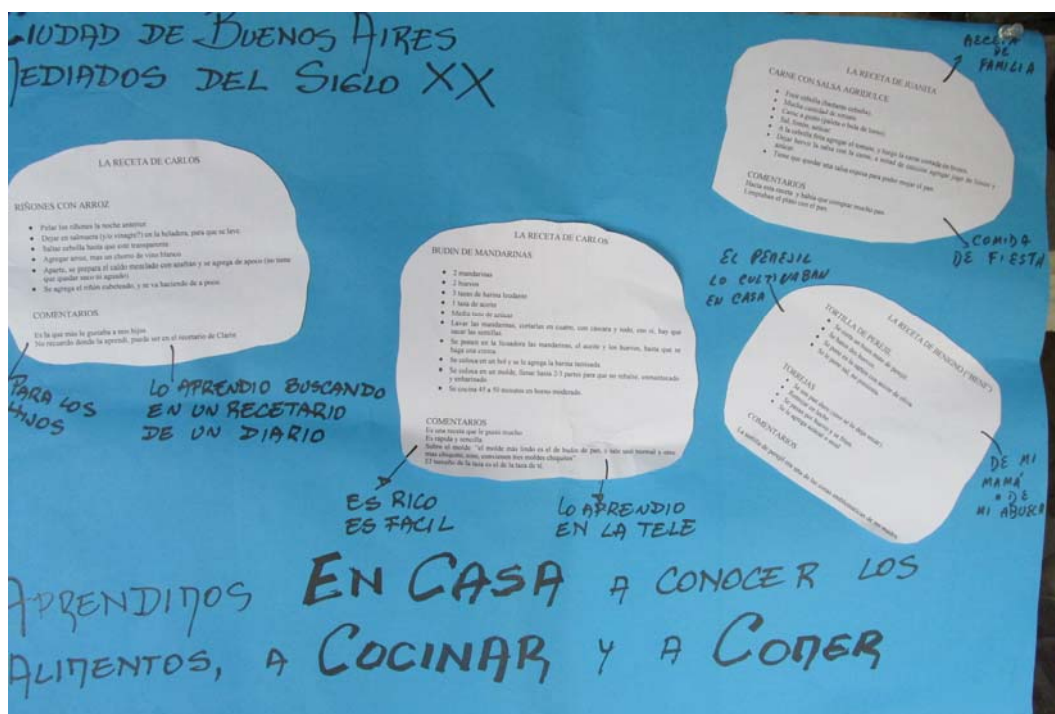 CIUDAD DE BUENOS AIRES
MEDIADOS DEL SIGLO XX
LA RECETA DE CARLOS
RIÑONES CON ARROZ
Pelar los riñones la noche anterior
Dejar en salmuera (y/o vinagre?) en la heladera, para que se lave.
Saltar cebolla hasta que esté transparente
Agregar arroz, mas un chorro de vino blanco
Aparte, se prepara el caldo mezclado con azafrán y se agrega de apoco (no tiene
que quedar seco ni aguado)
Se agrega el riñón cubeteado, y se va haciendo de a poco.
COMENTARIOS
Es la que más le gustaba a mis hijos
No recuerdo donde la aprendí, puede ser en el recetario de Clarín
PARA LOS
LO APRENDIO BUSCANDO
EN UN RECETARIO
DE UN DIARIO
LA RECETA DE CARLOS
BUDIN DE MANDARINAS
2 mandarinas
2 huevos
3 tazas de harina leudante
1 taza de aceite
Media taza de azúcar
Lavar las mandarinas, cortarlas en cuatro, con cáscara y todo, eso si, hay que
sacar las semillas.
Se ponen en la licuadora las mandarinas, el aceite y los huevos, hasta que se
haga una crema.
Se coloca en un bol y se le agrega la harina tamizada.
Se coloca en un molde, llenar hasta 2/3 partes para que no rebalse, enmantecado
y enharinado.
Se cocina 45 a 50 minutos en horno moderado.
COMENTARIOS
Es una receta que le gustó mucho
Es rápida y sencilla
Sobre el molde "el molde más lindo es el de budín de pan, y sale uno normal y otro
mas chiquito, sino, convienen tres moldes chiquitos"
El tamaño de la taza es el de la taza de té.
ES RICO
ES FACIL
LO APRENDIO
EN LA TELE
RECETA
DE
FAMILIA
LA RECETA DE JUANITA
CARNE CON SALSA AGRIDULCE
Picar cebolla (bastante cebolla)
Mucha cantidad de tomate
Carne a gusto (paleta o bola de lomo)
Sal, limón, azúcar
A la cebolla frita agregar el tomate, y luego la carne cortada en trozos.
Dejar hervir la salsa con la carne, a mitad de cocción agregar jugo de limón y
azúcar.
Tiene que quedar una salsa espesa para poder mojar el pan.
COMENTARIOS
Hacía esta receta y había que comprar mucho pan.
Limpiaban el plato con el pan.
COMIDA
DE FIESTA
EL PEREJIL
LO CULTIVABAN
EN CASA
LA RECETA DE BENIGNO ("BENE")
TORTILLA DE PEREJIL
Se baten dos huevos.
TORREJAS
COMENTARIOS
La tortilla de perejil era una de las cosas emblemáticas de mi madre.
DE MI
MAMÁ
O DE
MI ABUELA
APRENDIMOS EN CASA A CONOCER LOS
ALIMENTOS, A COCINAR Y A COMER